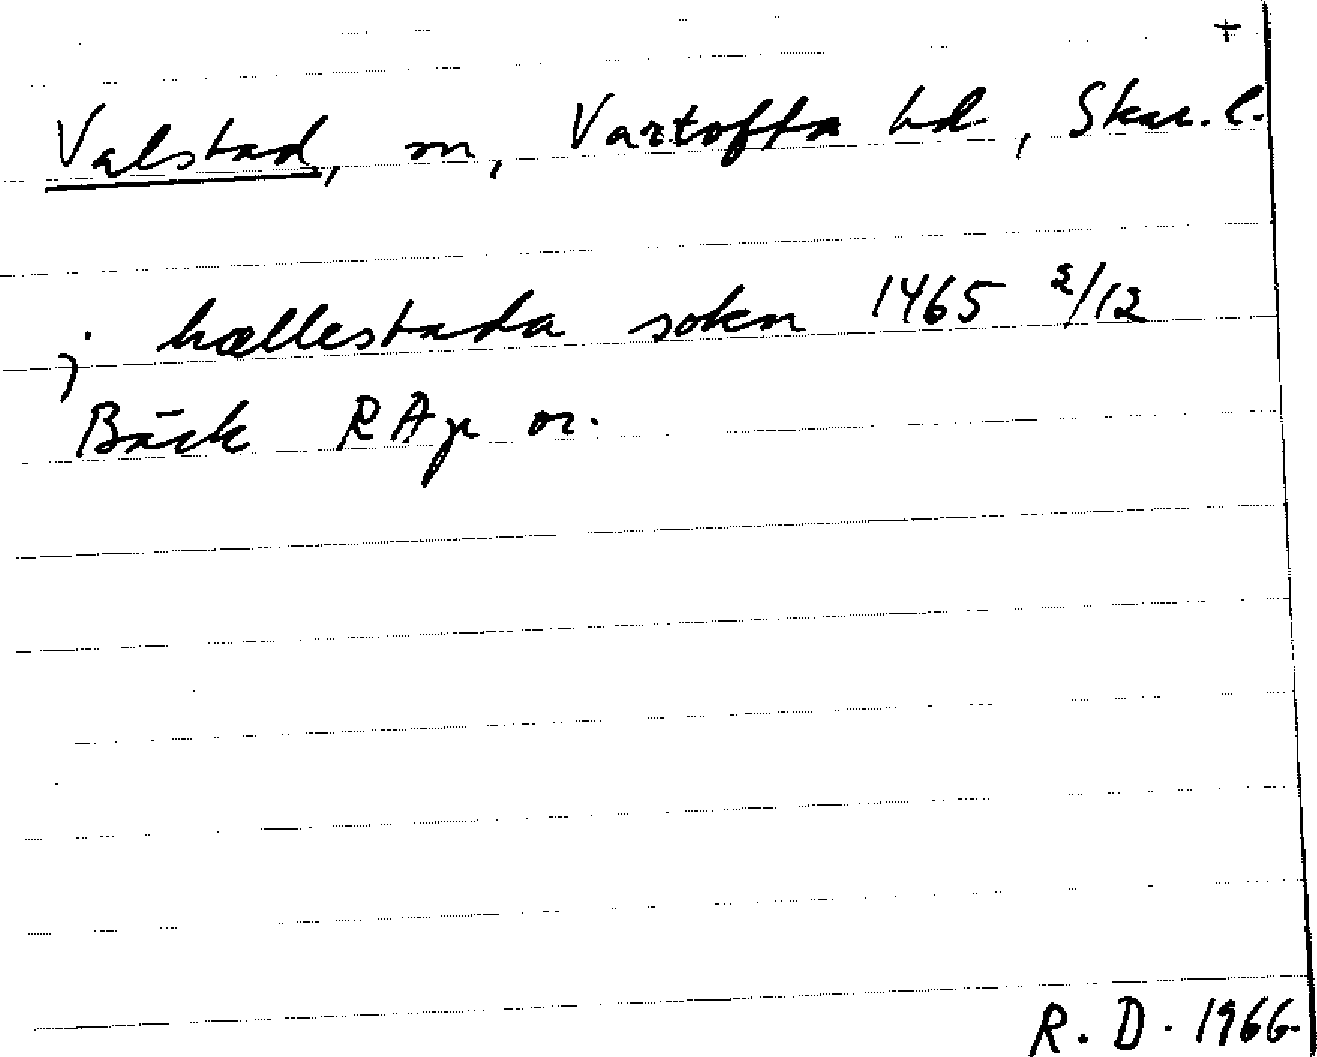 +
Valstad, sn, Vartofta hd., Skar. l.
j hællestada sokn 1465 2/12
Bäck RAp or.
R. D. 1966.